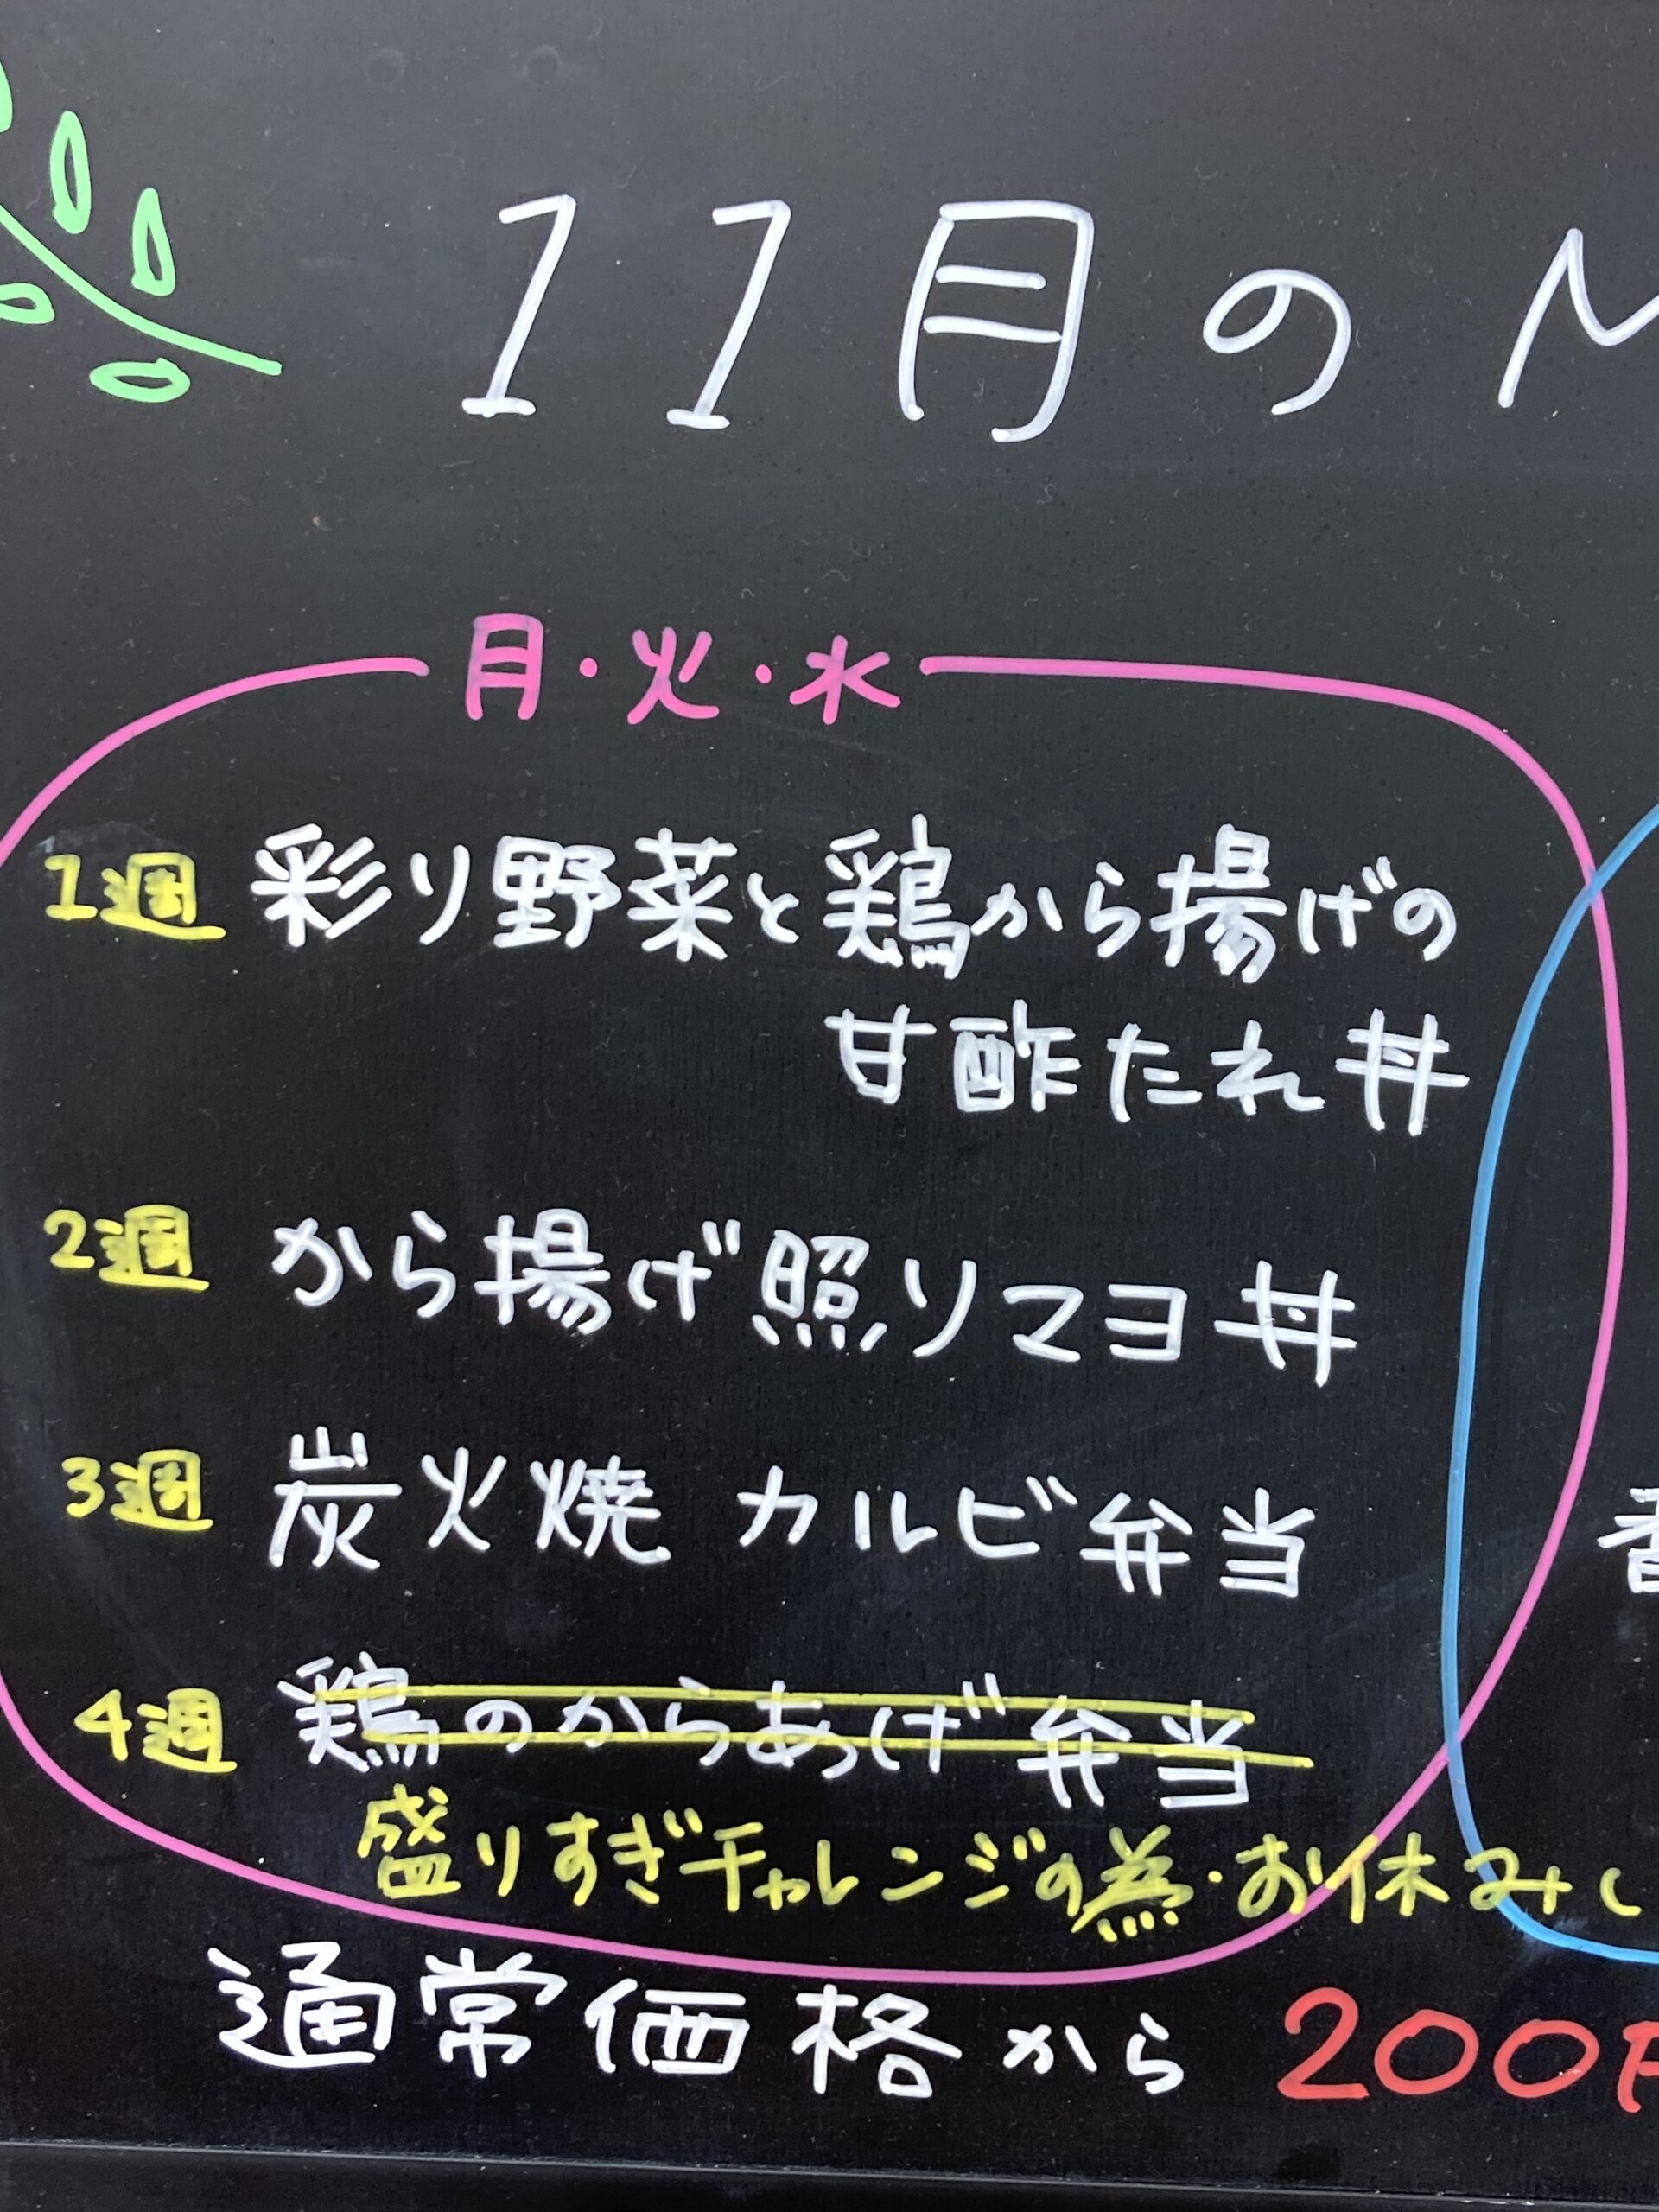 11月の
月・火・水
1週 彩り野菜と鶏から揚げの
甘酢たれ丼
2週 から揚げ照りマヨ丼
3週 炭火焼 カルビ弁当
4週 鶏のからあげ弁当
盛りすぎチャレンジの為・お休みし
通常価格から 200円